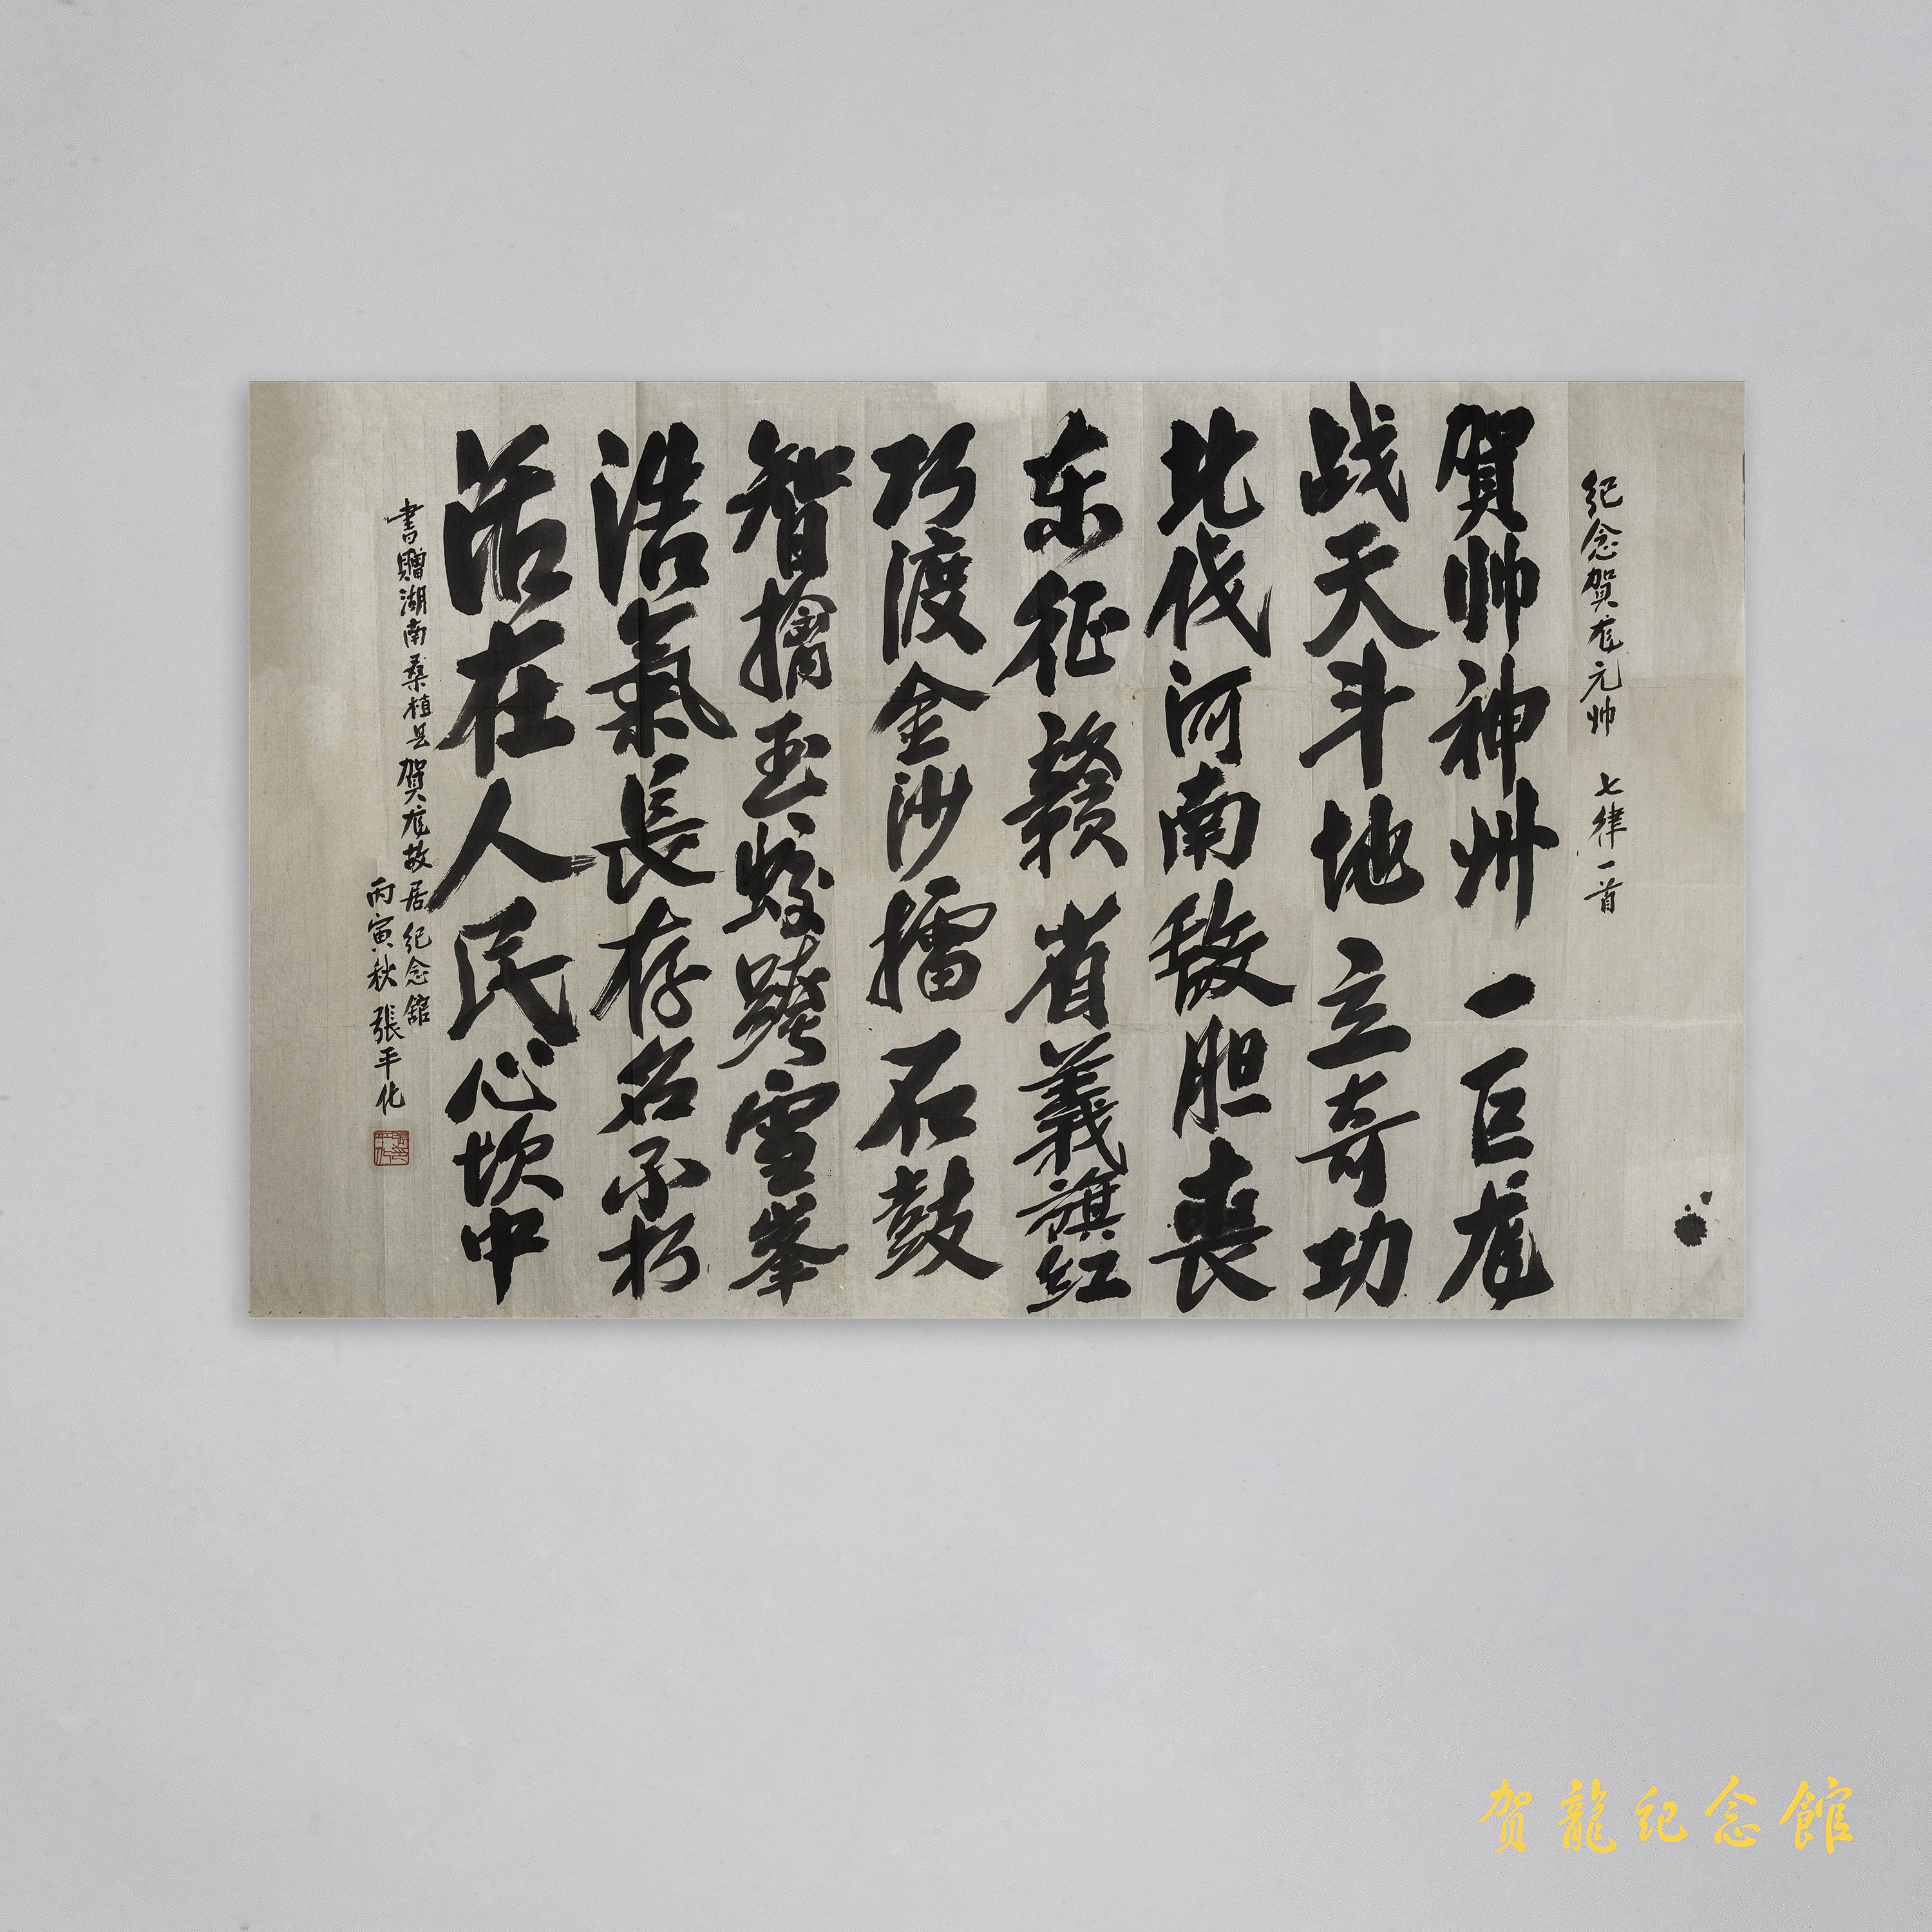 纪念贺龙元帅 七律一首
賀帅神州一巨龙
战天斗地立奇功
北伐河南敌胆丧
东征赣省義旗红
巧渡金沙擂石鼓
智擒玉蛟跨雪峯
浩氣長存名不朽
活在人民心坎中
書贈湖南桑植县贺龙故居纪念館
丙寅秋 張平化
贺龍纪念館